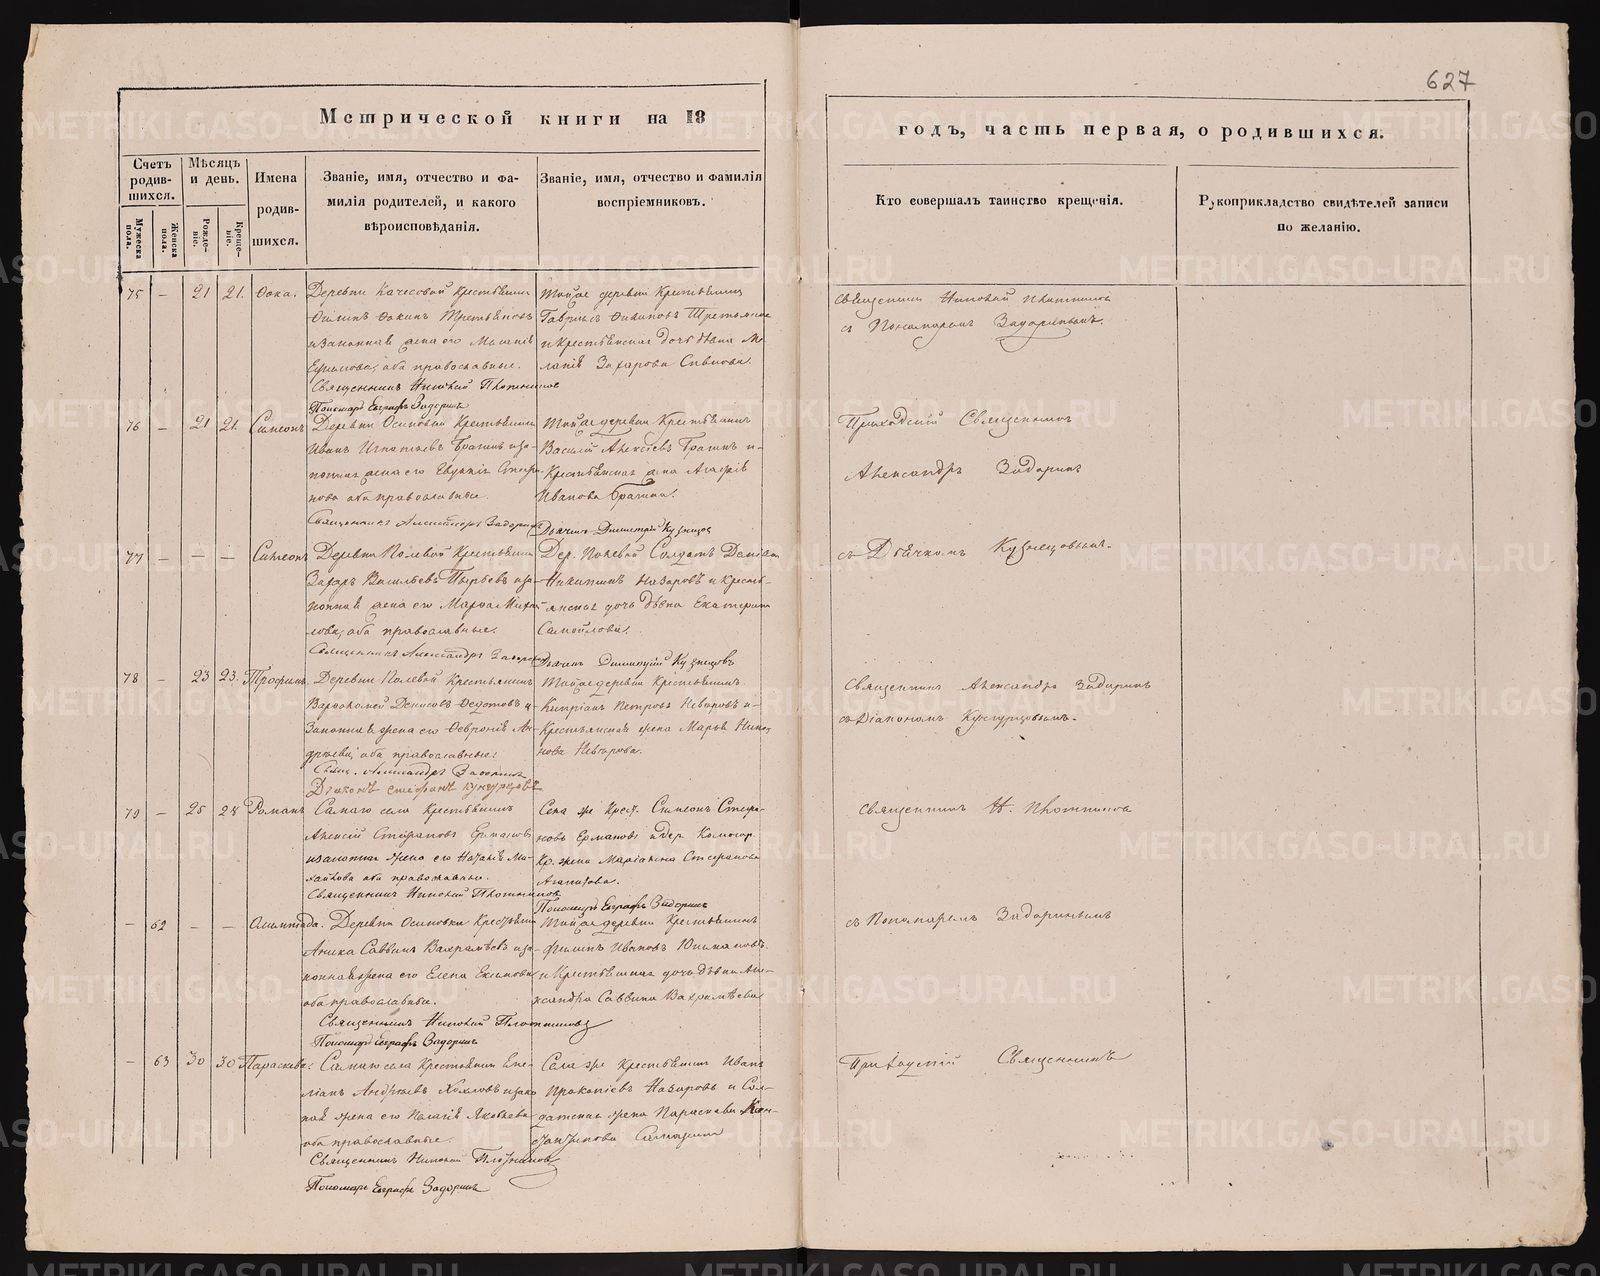 627
Метрической книги на 18
годъ, часть первая, о родившихся.
Счетъ родив-шихся.
Мѣсяцъ и день.
Имена родив-шихся.
Званіе, имя, отчество и фа-
милія родителей, и какого
вѣроисповѣданія.
Званіе, имя, отчество и фамилія
воспріемниковъ.
Кто совершалъ таинство крещенія.
Рукоприкладство свидѣтелей записи
по желанію.
Мужеска пола.
Женска пола.
Рожде-ніе.
Креще-ніе.
75 – 21 21. Фока.
Деревни Качесовой крестьянинъ
Филипъ Фокинъ Третьяковъ
и законная жена его Меланія
Ефимова, оба православные.
Священникъ Николай Плотниковъ
Пономарь Евграфъ Задоринъ
Той же деревни крестьянинъ
Гаврилъ Третьяковъ
и крестьянская дочь дѣвка Ме-
ланія Захарова
Священникъ Николай Плотниковъ
съ Пономаремъ Задоринымъ.
76 – 21 21. Симеонъ
Деревни Осиновки Крестьянинъ
Иванъ Игнатьевъ Брагинъ и за-
конная жена его Евдокія
оба православные.
Священникъ Александръ Задоринъ
Той же деревни Крестьянинъ
Василій Алексѣевъ Брагинъ и
Крестьянская жена Агафія
Иванова Брагина.
Дьячекъ Димитрій Кузнецов
Приходскій Священникъ
Александръ Задоринъ
77 – – – Симеонъ
Деревни Полевой Крестьянинъ
Захаръ Васильевъ Пырьевъ и за-
конная жена его Марѳа
оба православные.
Священникъ Александръ Задоринъ
Дер. Полевой Солдатъ
Никитинъ Назаровъ и кресть-
янская дочь дѣвка Екатерина
Самойлова.
Дьячекъ Димитрій Кузнецовъ
съ Дьячкомъ Кузнецовымъ.
78 – 23 23. Трофимъ
Деревни Полевой Крестьянинъ
Варѳоломей Денисовъ Федотовъ и
Законная жена его Февронія Ан-
дреева, оба православные.
Свящ. Александръ Задоринъ
Діаконъ Стефанъ Кунгурцовъ
Той же деревни Крестьянинъ
Кипріанъ Петровъ и
Крестьянская жена Марья
Священникъ Александръ Задоринъ
съ Діакономъ Кунгурцовымъ.
79 – 25 28 Романъ
Самаго села Крестьянинъ
Алексій Стефановъ Ермаковъ
и законная жена его Наталія Ми-
хайлова оба православные.
Священникъ Николай Плотниковъ
Села же Крест. Симеонъ Стефа-
новъ Ермаковъ и дер.
Кр. жена Маріанна Стефанова
Пономарь Евграфъ Задоринъ
Священникъ Н. Плотниковъ
– 62 – –
Деревни Осиновки Крестьянинъ
Аника Саввинъ Вахрамѣевъ и за-
конная жена его Елена
оба православные.
Священникъ Николай Плотниковъ
Пономарь Евграфъ Задоринъ
Той же деревни Крестьянинъ
Филипъ Ивановъ
и Крестьянская дочь дѣвка Але-
ксандра Саввина Вахрамѣева
съ Пономаремъ Задоринымъ
– 63 30 30 Параскева
Самаго села Крестьянинъ Еме-
ліанъ Андреевъ Хохловъ и зако-
ная жена его Пелагія Яковлева
оба православные.
Священникъ Николай Плотниковъ
Пономарь Евграфъ Задоринъ
Села же Крестьянинъ Иванъ
Прокопіевъ Назаровъ и Сол-
датская жена Параскева
Приходскій Священникъ
METRIKI.GASO-URAL.RU